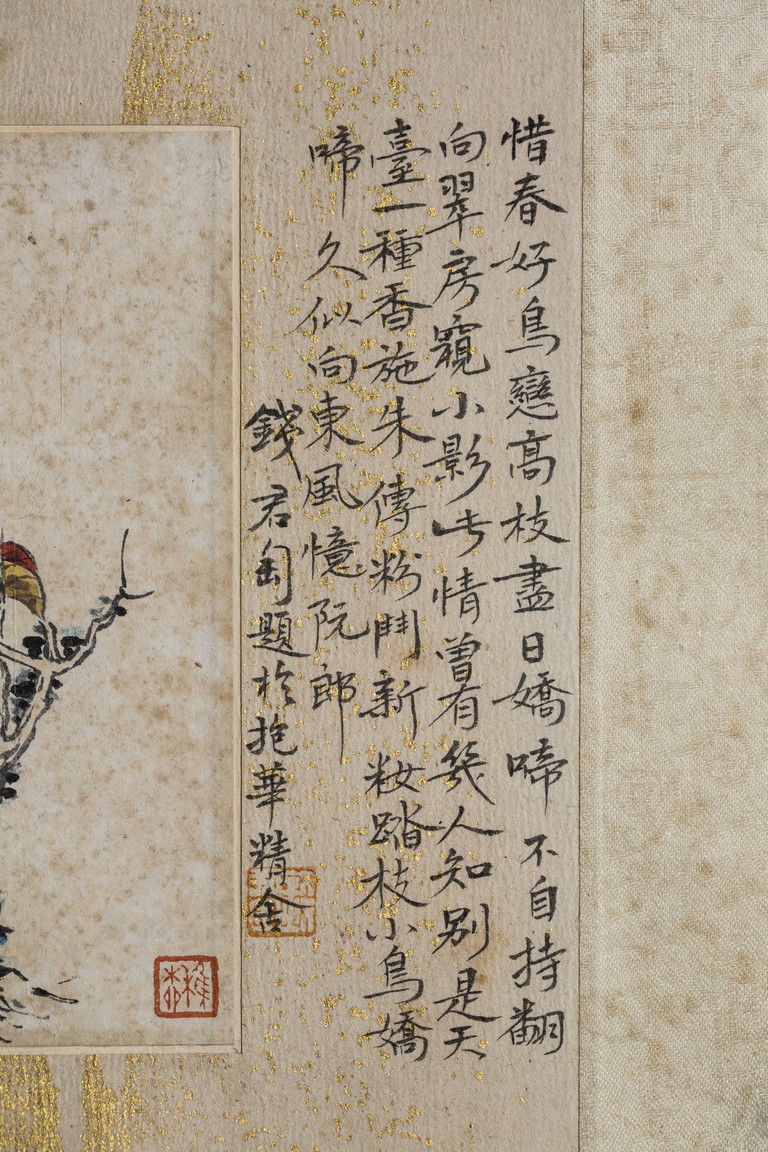 惜春好鳥戀高枝盡日嬌啼不自持翻
向翠房窺小影此情曾有幾人知別是天
臺一種香施朱傳粉鬥新籹踏枝小鳥嬌
啼久似向東風憶阮郎
錢君匋題於抱華精舍